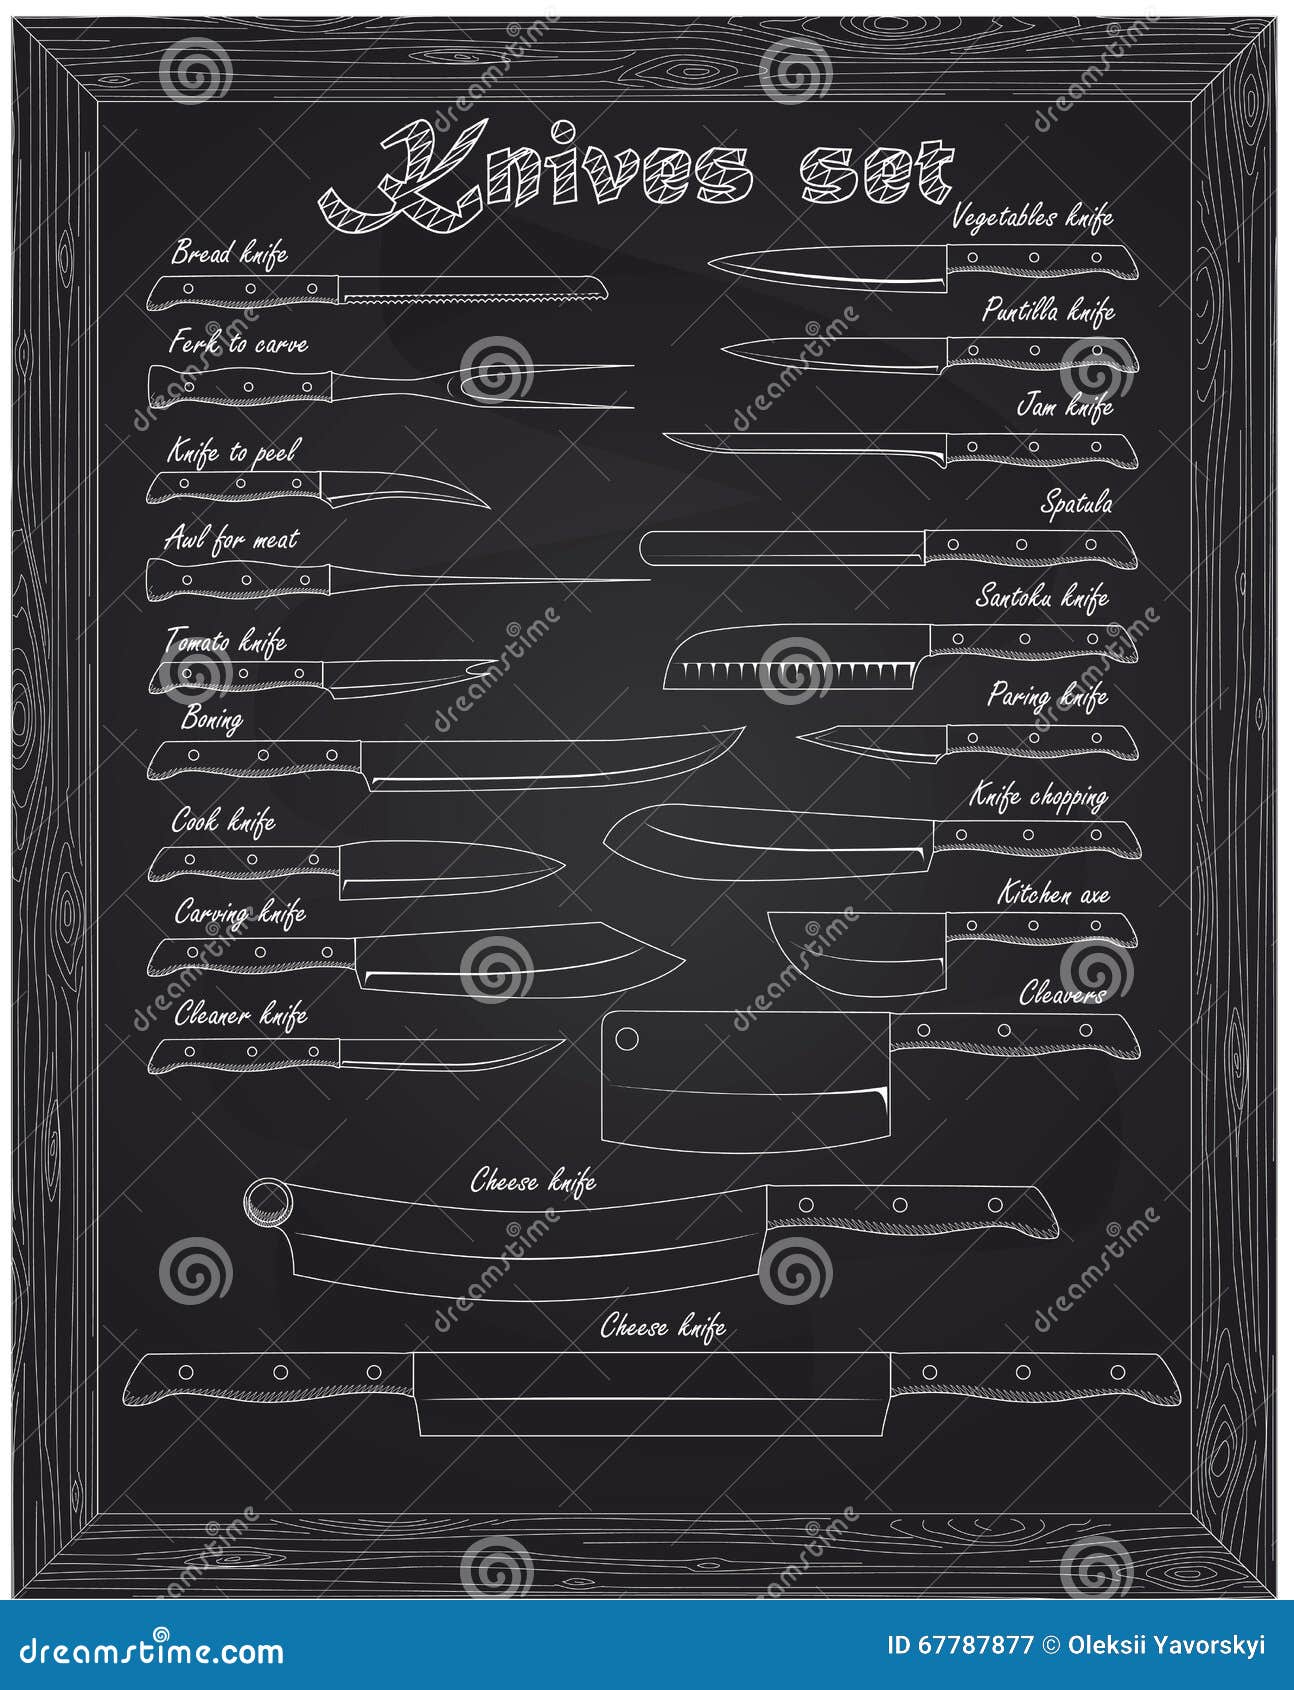 Knives set
Bread knife
Ferk to carve
Knife to peel
Awl for meat
Tomato knife
Boning
Cook knife
Carving knife
Cleaner knife
Vegetables knife
Puntilla knife
Jam knife
Spatula
Santoku knife
Paring knife
Knife chopping
Kitchen axe
Cleavers
Cheese knife
Cheese knife
dreamstime
dreamstime
dreamstime
dreamstime
dreamstime
dreamstime
dreamstime
dreamstime
dreamstime
dreamstime
dreamstime
dreamstime
dreamstime.com
ID 67787877 © Oleksii Yavorskyi